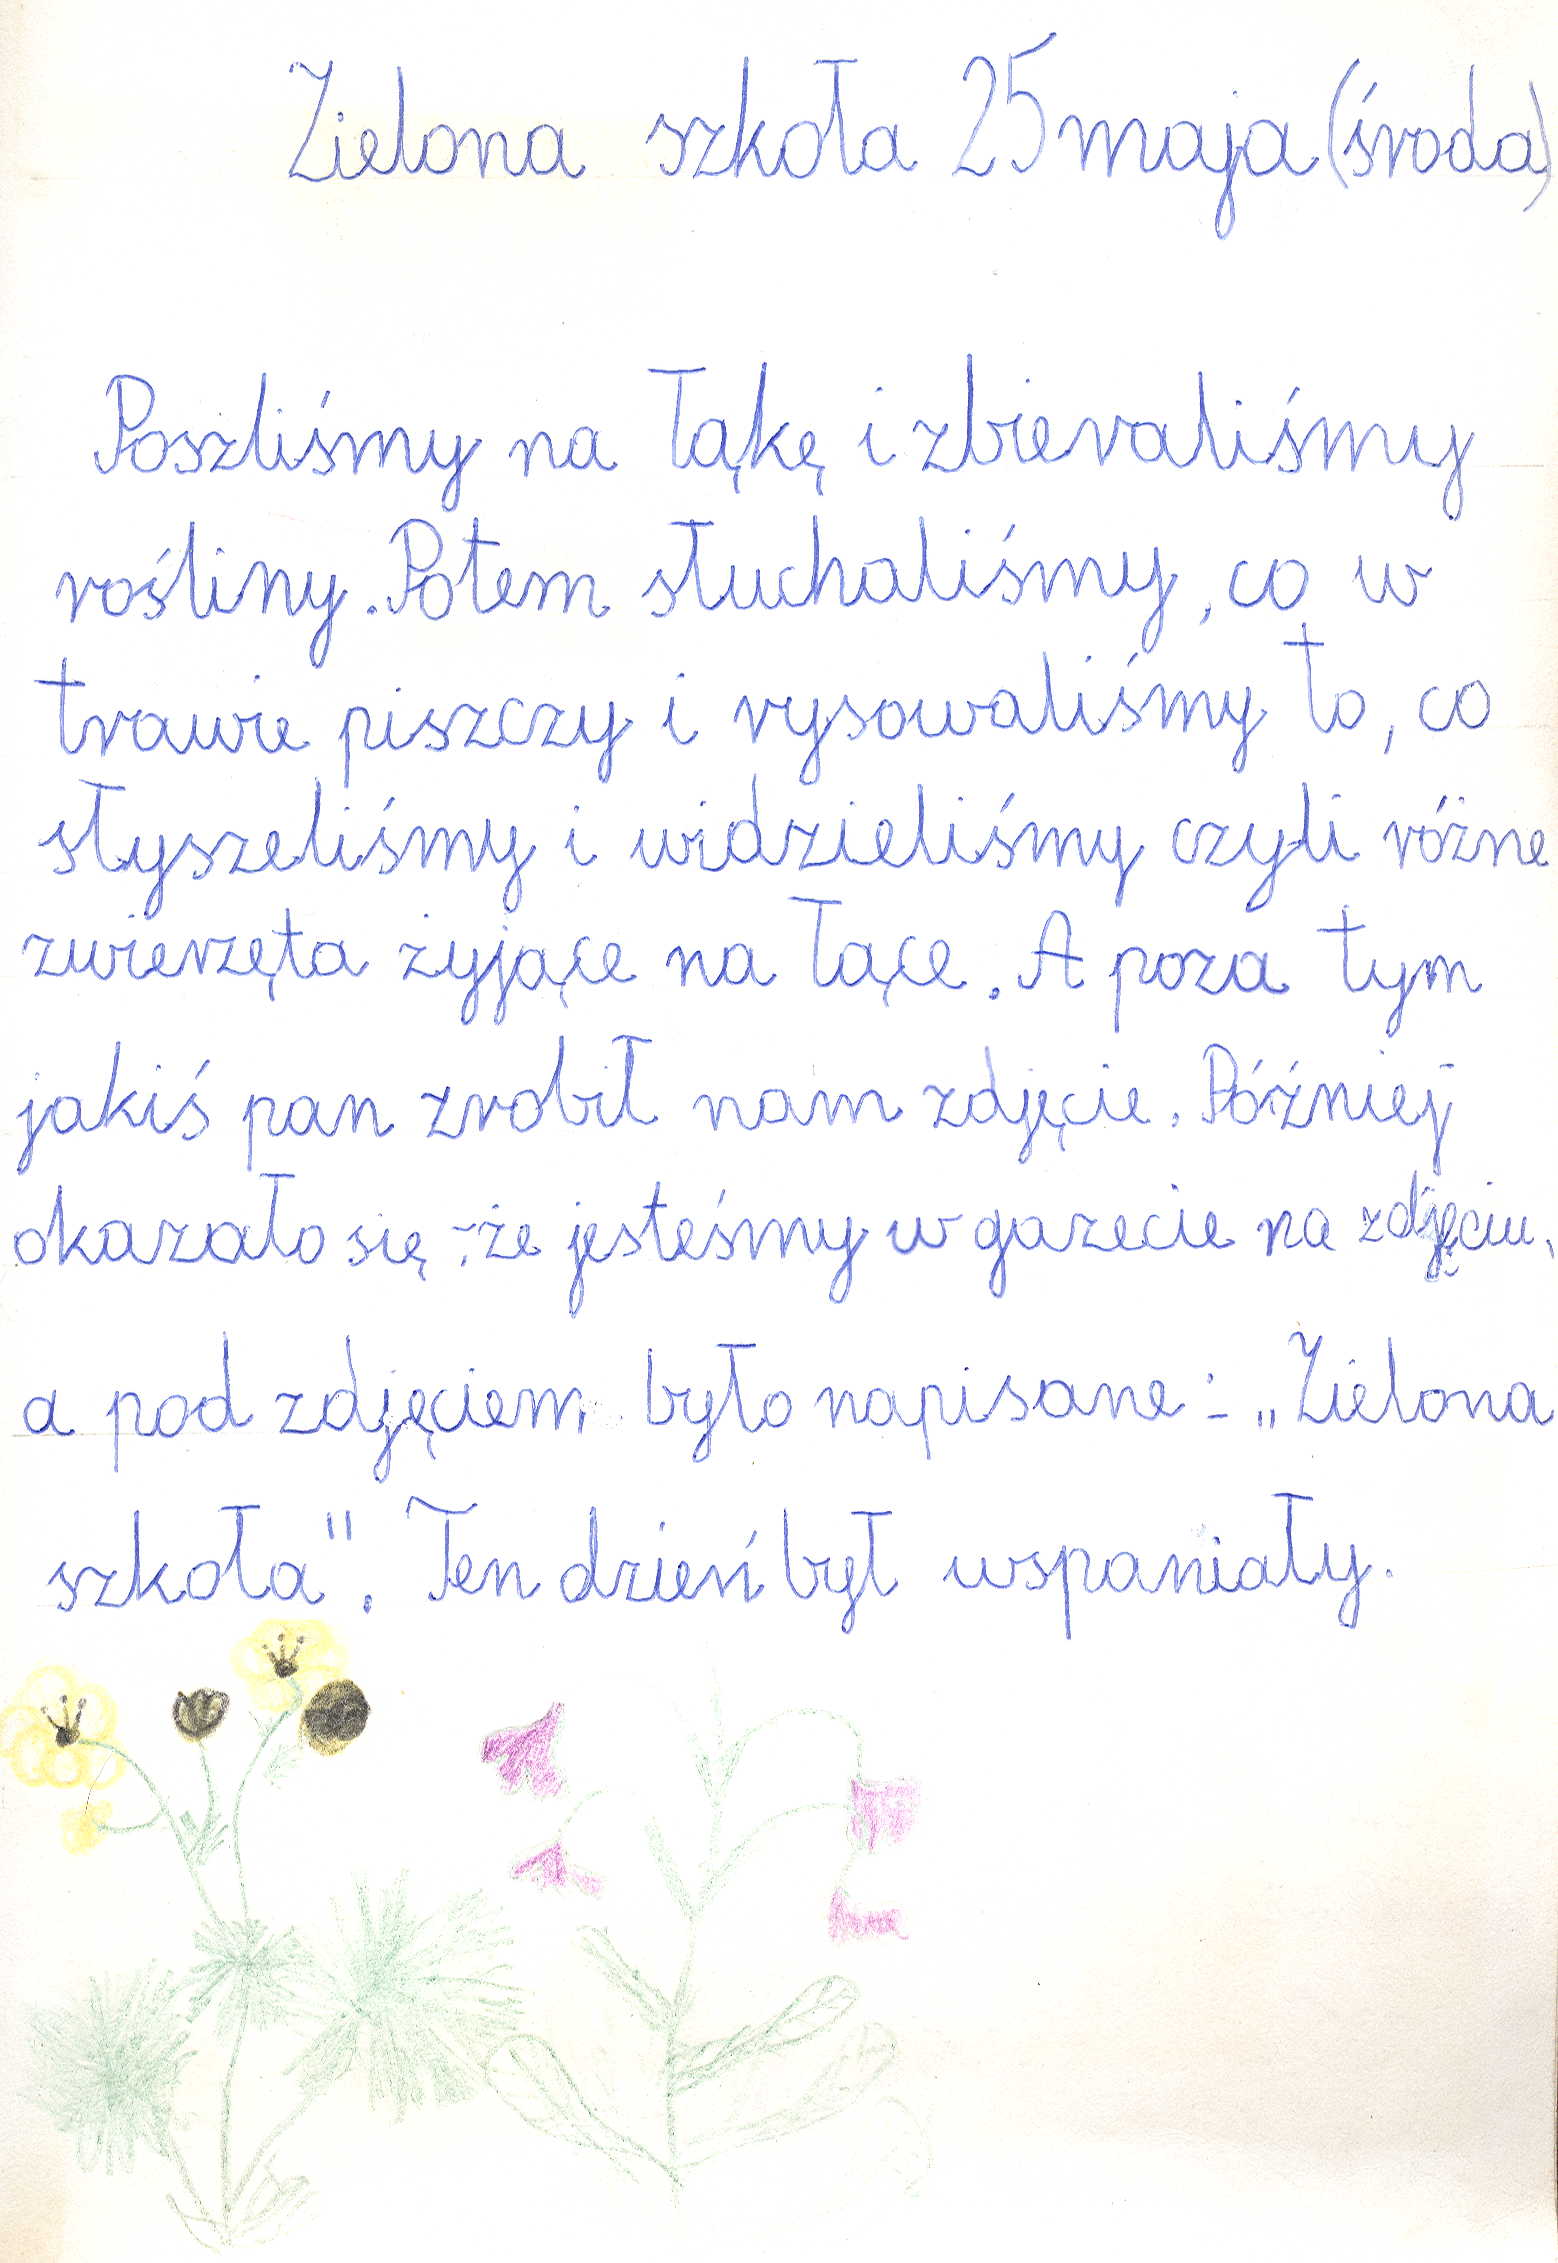 Zielona szkoła 25 maja (środa)
Poszliśmy na łąkę i zbieraliśmy
rośliny. Potem słuchaliśmy, co w
trawie piszczy i rysowaliśmy to, co
słyszeliśmy i widzieliśmy czyli różne
zwierzęta żyjące na łące. A poza tym
jakiś pan zrobił nam zdjęcie. Później
okazało się, że jesteśmy w gazecie na zdjęciu,
a pod zdjęciem było napisane: „Zielona
szkoła". Ten dzień był wspaniały.